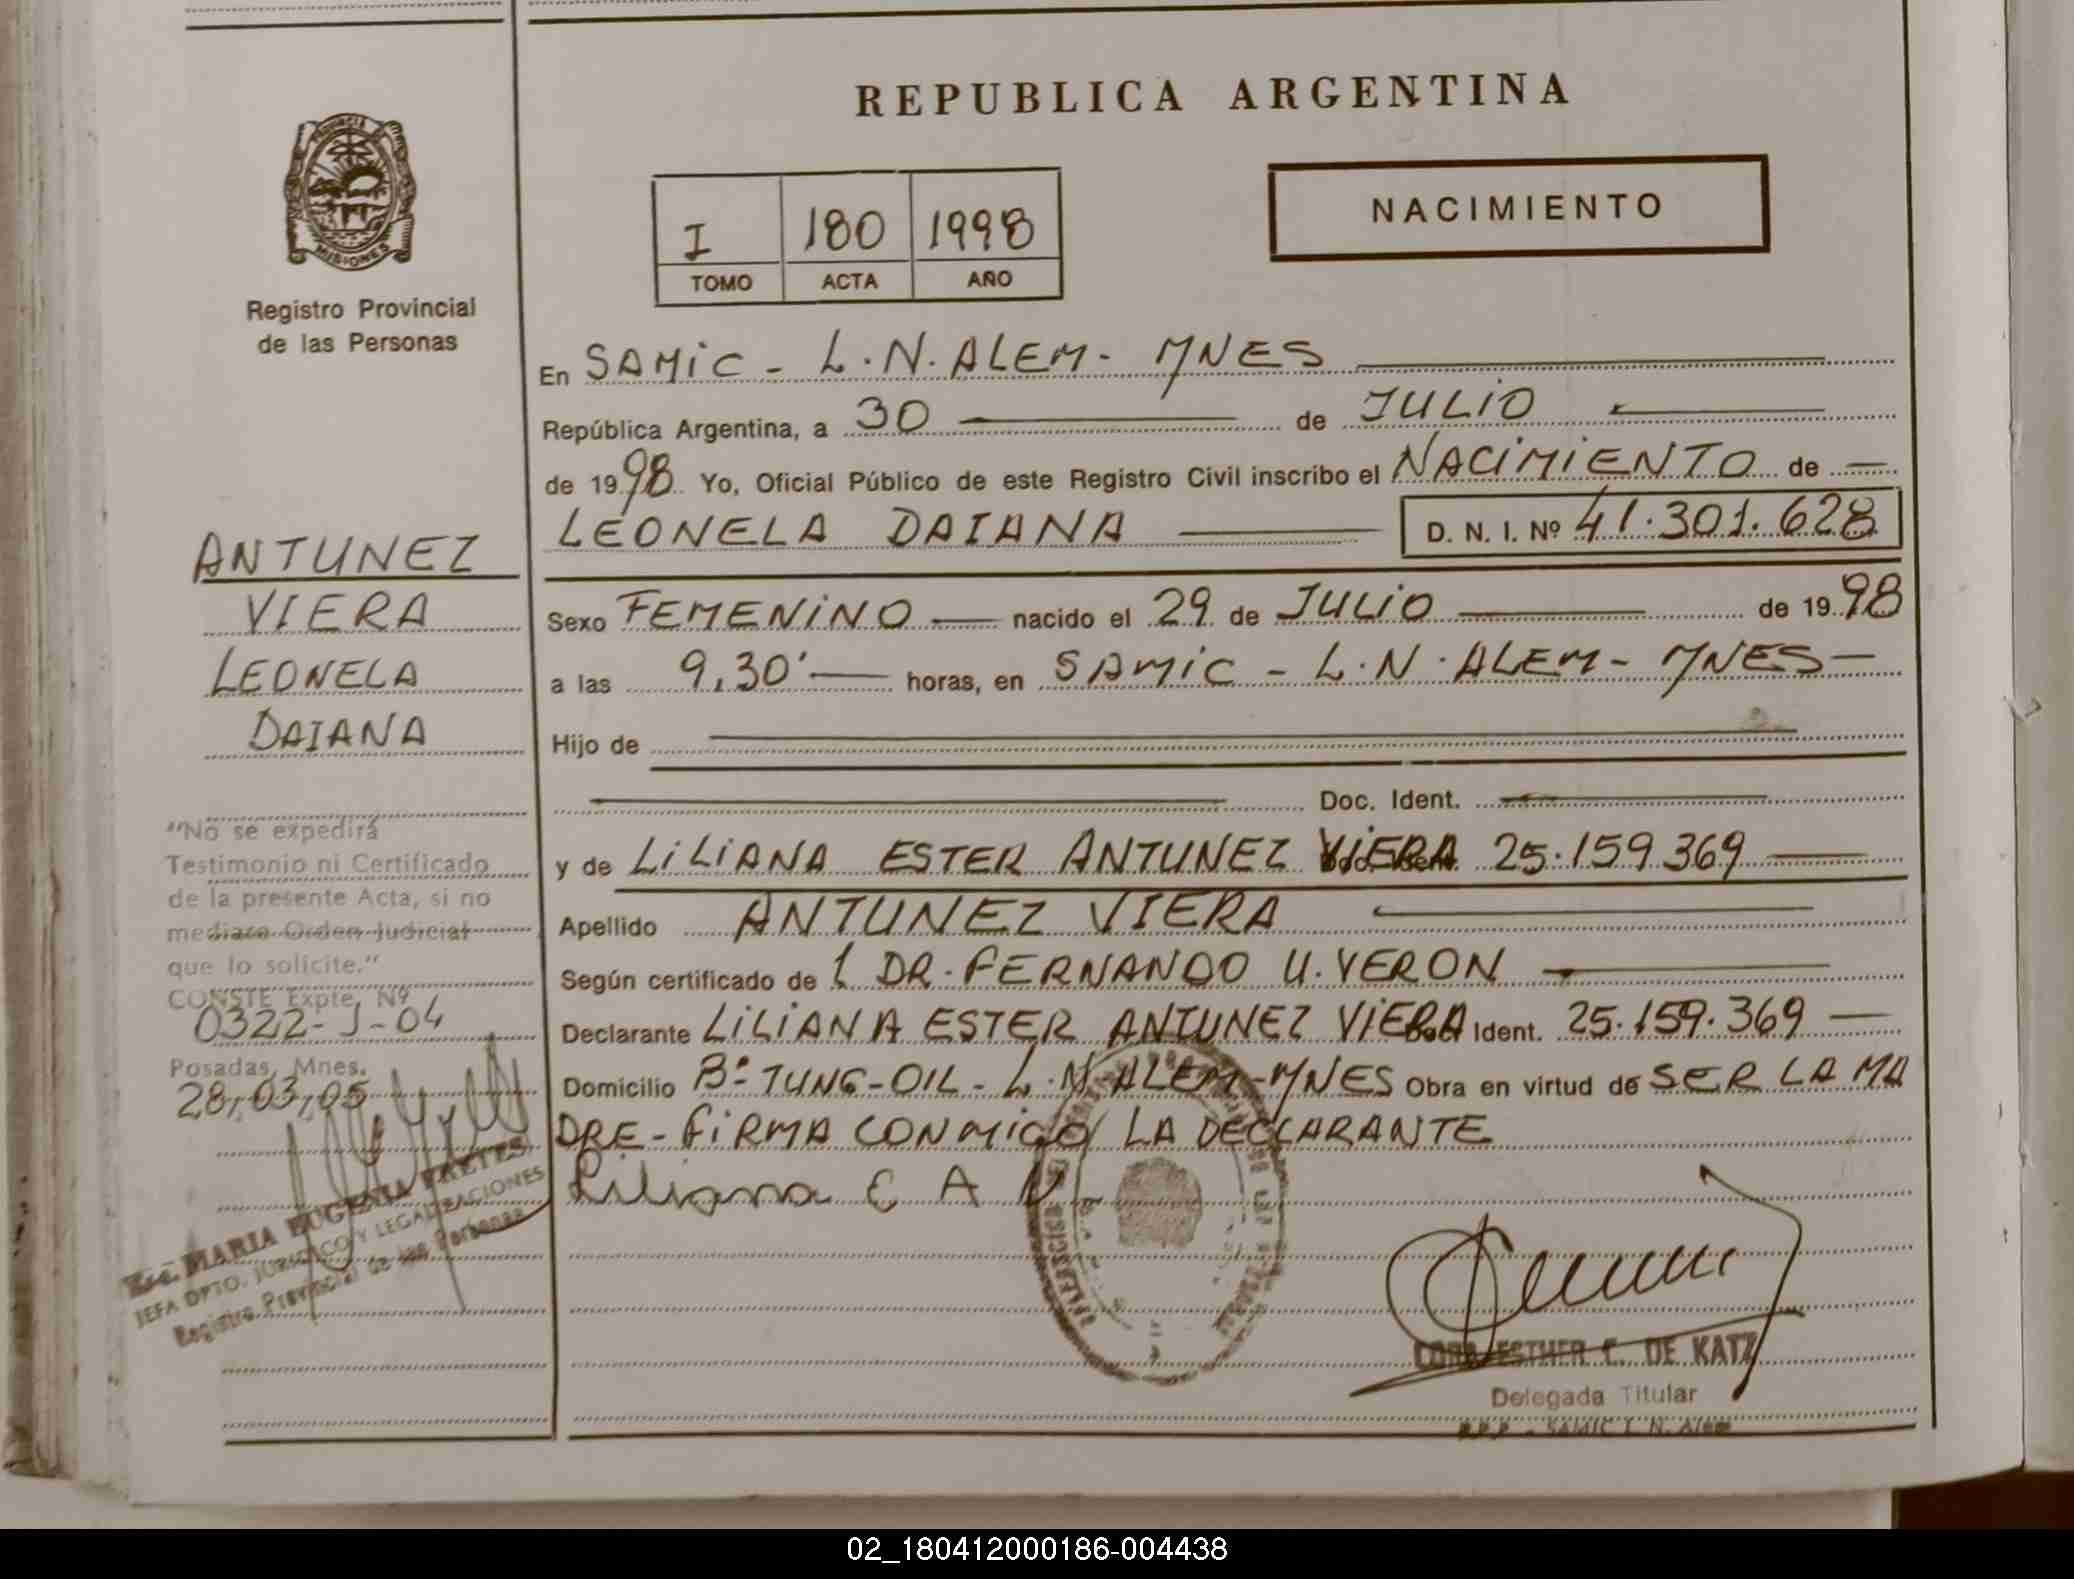 REPUBLICA ARGENTINA
PROVINCIA DE
MISIONES
Registro Provincial
de las Personas
I 180 1998
TOMO ACTA AÑO
NACIMIENTO
En SAMIC - L.N. ALEM - MNES
República Argentina, a 30 de JULIO
de 1998 Yo, Oficial Público de este Registro Civil inscribo el NACIMIENTO de
LEONELA DAIANA D. N. I. Nº 41.301.628
Sexo FEMENINO nacido el 29 de JULIO de 1998
a las 9,30' horas, en SAMIC - L.N. ALEM - MNES
Hijo de
Doc. Ident.
y de LILIANA ESTER ANTUNEZ VIERA Doc. Ident. 25.159.369
Apellido ANTUNEZ VIERA
Según certificado de 1 DR. FERNANDO U. VERON
Declarante LILIANA ESTER ANTUNEZ VIERA Doc. Ident. 25.159.369
Domicilio Bº TUNG-OIL - L.N. ALEM - MNES Obra en virtud de SER LA MA
DRE - FIRMA CONMIGO LA DECLARANTE
Liliana E A V
CORA ESTHER C. DE KATZ
Delegada Titular
R.P.P. - SAMIC L. N. Alem
ANTUNEZ
VIERA
LEONELA
DAIANA
"No se expedirá
Testimonio ni Certificado
de la presente Acta, si no
mediare Orden Judicial
que lo solicite."
CONSTE Expte. Nº
0322-J-04
Posadas, Mnes.
28,03,05
MARIA EUGENIA FRETES
JEFA DPTO. JURIDICO Y LEGALIZACIONES
Registro Provincial de las Personas
02_180412000186-004438